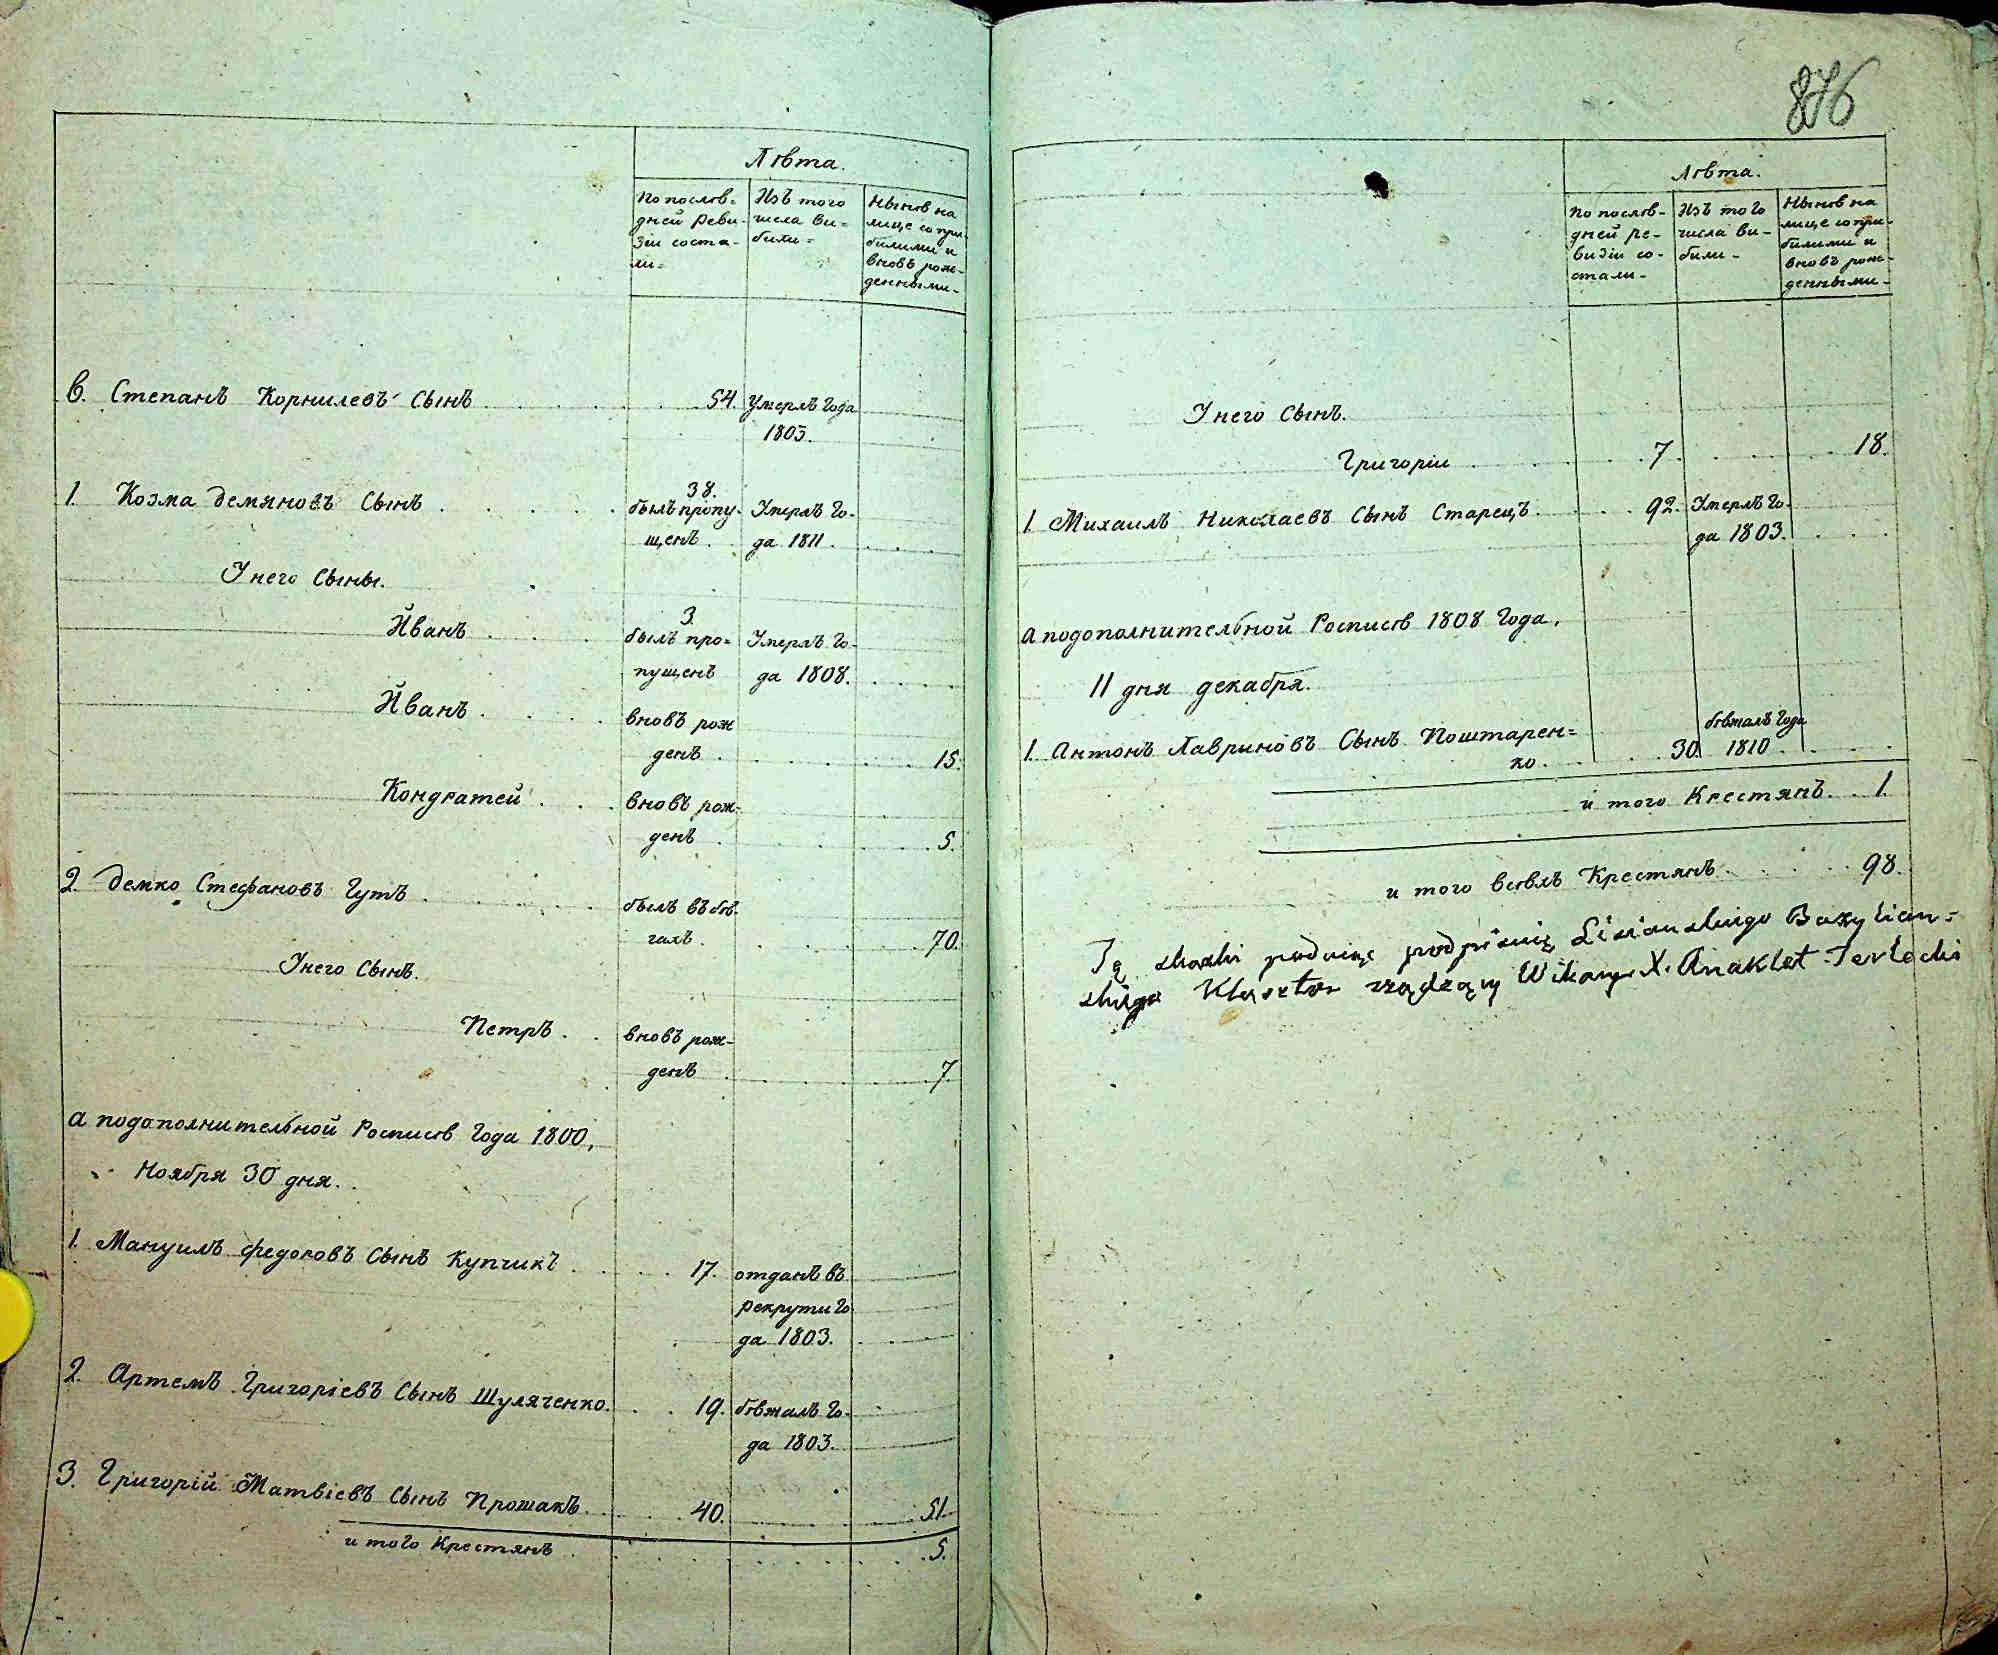 Лѣта.
По послѣ=
дней Реви-
зіи соста-
ли=
Изъ того
числа ви=
били=
Нынѣ на
лице сопри-
билими и
вновь рож-
денными-
6. Степанъ Корнилевъ Сынъ 54. Умерлъ Года
1803.
38.
1. Козма Демяновъ Сынъ былъ пропу- Умерлъ Го-
щенъ да 1811.
У него Сыны.
3.
Йванъ былъ про= Умерлъ Го-
пущенъ да 1808.
Йванъ вновь рож
денъ 15.
Кондратей вновь рож-
денъ 5.
2. Демко Стефановъ Гутъ былъ въ бѣ-
гахъ 70.
У него Сынъ.
Петръ вновь рож-
денъ 7.
а по дополнительной Росписѣ Года 1800,
Ноября 30 дня.
1. Мануилъ Федоровъ Сынъ Купчикъ 17. отданъ въ
рекрути Го
да 1803.
2. Артемъ Григоріевъ Сынъ Шуляченко. 19. бѣжалъ Го-
да 1803.
3. Григорій Матвіевъ Сынъ Прошакъ 40. 51.
и того Крестянъ 5.
876
Лѣта.
По послѣ-
дней ре-
визіи со-
стали-
Изъ того
числа ви-
били-
Нынѣ на
лице сопри-
билими и
вновь рож-
денными-
У него Сынъ.
Григоріи 7. 18.
1. Михаилъ Николаевъ Сынъ Старецъ 92. Умерлъ Го-
да 1803.
а по дополнительной Росписѣ 1808 Года,
11 дня декабря.
бѣжалъ Года
1. Антонъ Лавриновъ Сынъ Поштарен= 30. 1810.
ко.
и того Крестянъ 1.
и того всѣхъ Крестянъ 98.
Tę skazki podaię podpisuię Lisianskiego Bazylian=
skiego Klasztor rządzący Wikary X. Anaklet Terlecki